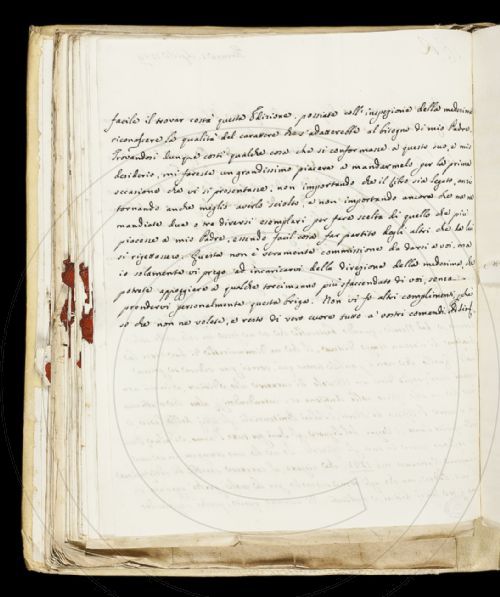 facile il trovar costà questa Edizione, possiate coll'inspezione della medesima
riconoscere la qualità del carattere che s'adatterebbe al bisogno di mio Padre.
Trovandosi dunque costì qualche cosa che si conformasse a questo suo, e mio
desiderio, mi fareste un grandissimo piacere a mandarmelo per la prima
occasione che vi si presentasse; non importando che il libro sia legato, anzi
tornando anche meglio averlo sciolto, e non importando ancora che ne
mandiate due o tre diversi esemplari per fare scelta di quello che più
piacesse a mio Padre, essendo facil cosa far partito degli altri che da lui
si rigettassero. Questa non è veramente commissione da darsi a voi, ma
io solamente vi prego ad incaricarvi della direzione della medesima, che
potrete appoggiare a qualche torcimanno più sfaccendato di voi, senza
prendervi personalmente questa briga. Non vi fo altri complimenti, che
so che non ne volete, e resto di vero cuore tutto a' vostri comandi. Addio